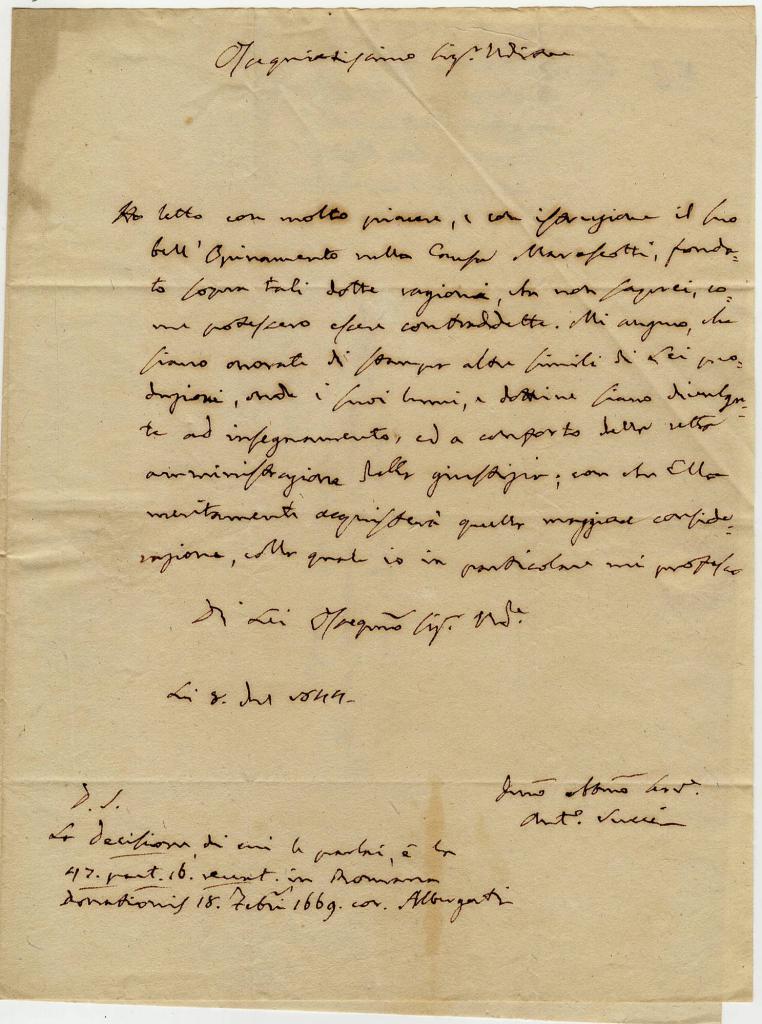 Ossequiatissimo Sig.r
Ho letto con molto piacere, e con istruzione il suo
bell' Opinamento nella Causa Marescotti, fonda=
to sopra tali dotte ragioni, che non saprei, co=
me potessero essere contraddette. Mi auguro, che
siano onorate di stampa altre simili di Lei pro=
duzioni, onde i suoi lumi, e dottrine siano divulga=
te ad insegnamento, ed a conforto della retta
amministrazione della giustizia; con che Ella
meritamente acquisterà quella maggiore conside=
razione, colla quale io in particolare mi professo
Di Lei Sig.r
Li 8. 1844.
P. S.
La decisione, di cui le parlai, è la
47. part. 16. recent. in Romana
Donationis 18. 1669. cor. Albergati
Ant.o